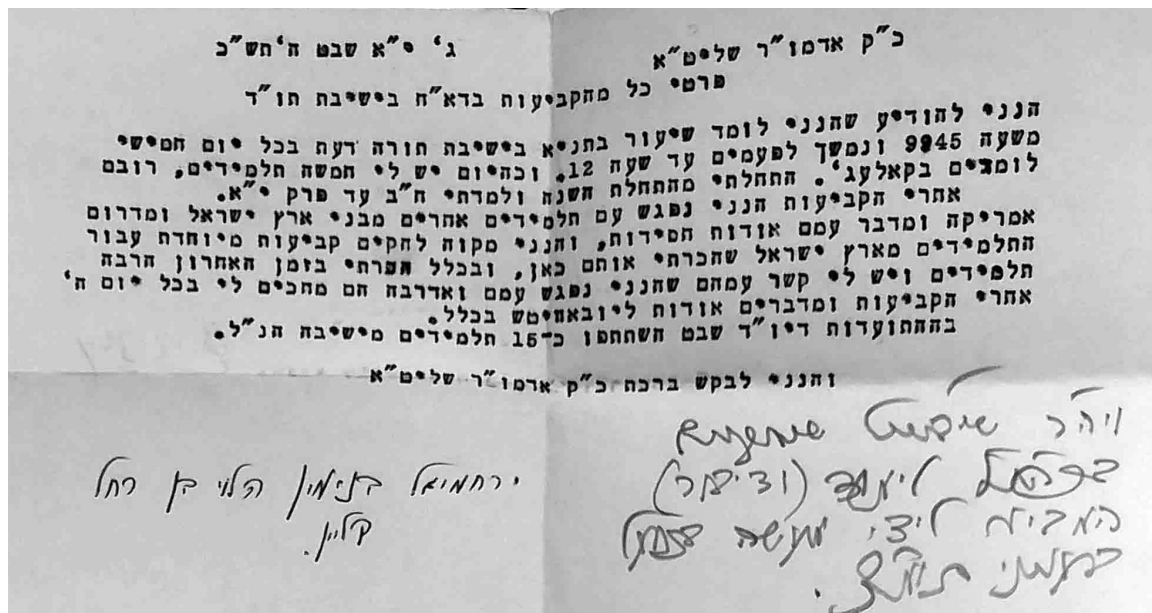 כ"ק אדמו"ר שליט"א
ג' י"א שבט ה'תש"כ
פרטי כל מהקביעות בדא"ח בישיבת תו"ד
הנני להודיע שהנני לומד שיעור בתניא בישיבת תורה דעת בכל יום חמישי
משעה 9945 ונמשך לפעמים עד שעה 12. וכהיום יש לי חמשה תלמידים, רובם
לומדים בקאלעג'. התחלתי מהתחלת השנה ולמדתי ח"ב עד פרק י"א.
אחרי הקביעות הנני נפגש עם תלמידים אחרים מבני ארץ ישראל ומדרום
אמריקה ומדבר עמם אודות חסידות, והנני מקוה להקים קביעות מיוחדת עבור
התלמידים מארץ ישראל שהכרתי אותם כאן, ובכלל הפרתי בזמן האחרון הרבה
תלמידים ויש לי קשר עמהם שהנני נפגש עמם ואדרבה הם מחכים לי בכל יום ה'
אחרי הקביעות ומדברים אודות ליובאוויטש בכלל.
בההתועדות דיו"ד שבט השתתפו כ-15 תלמידים מישיבה הנ"ל.
והנני לבקש ברכת כ"ק אדמו"ר שליט"א
ירחמיאל בנימין הלוי בן רחל
קליין.
ויה"ר
(ודיבור)
המביא לידי מעשה בפועל